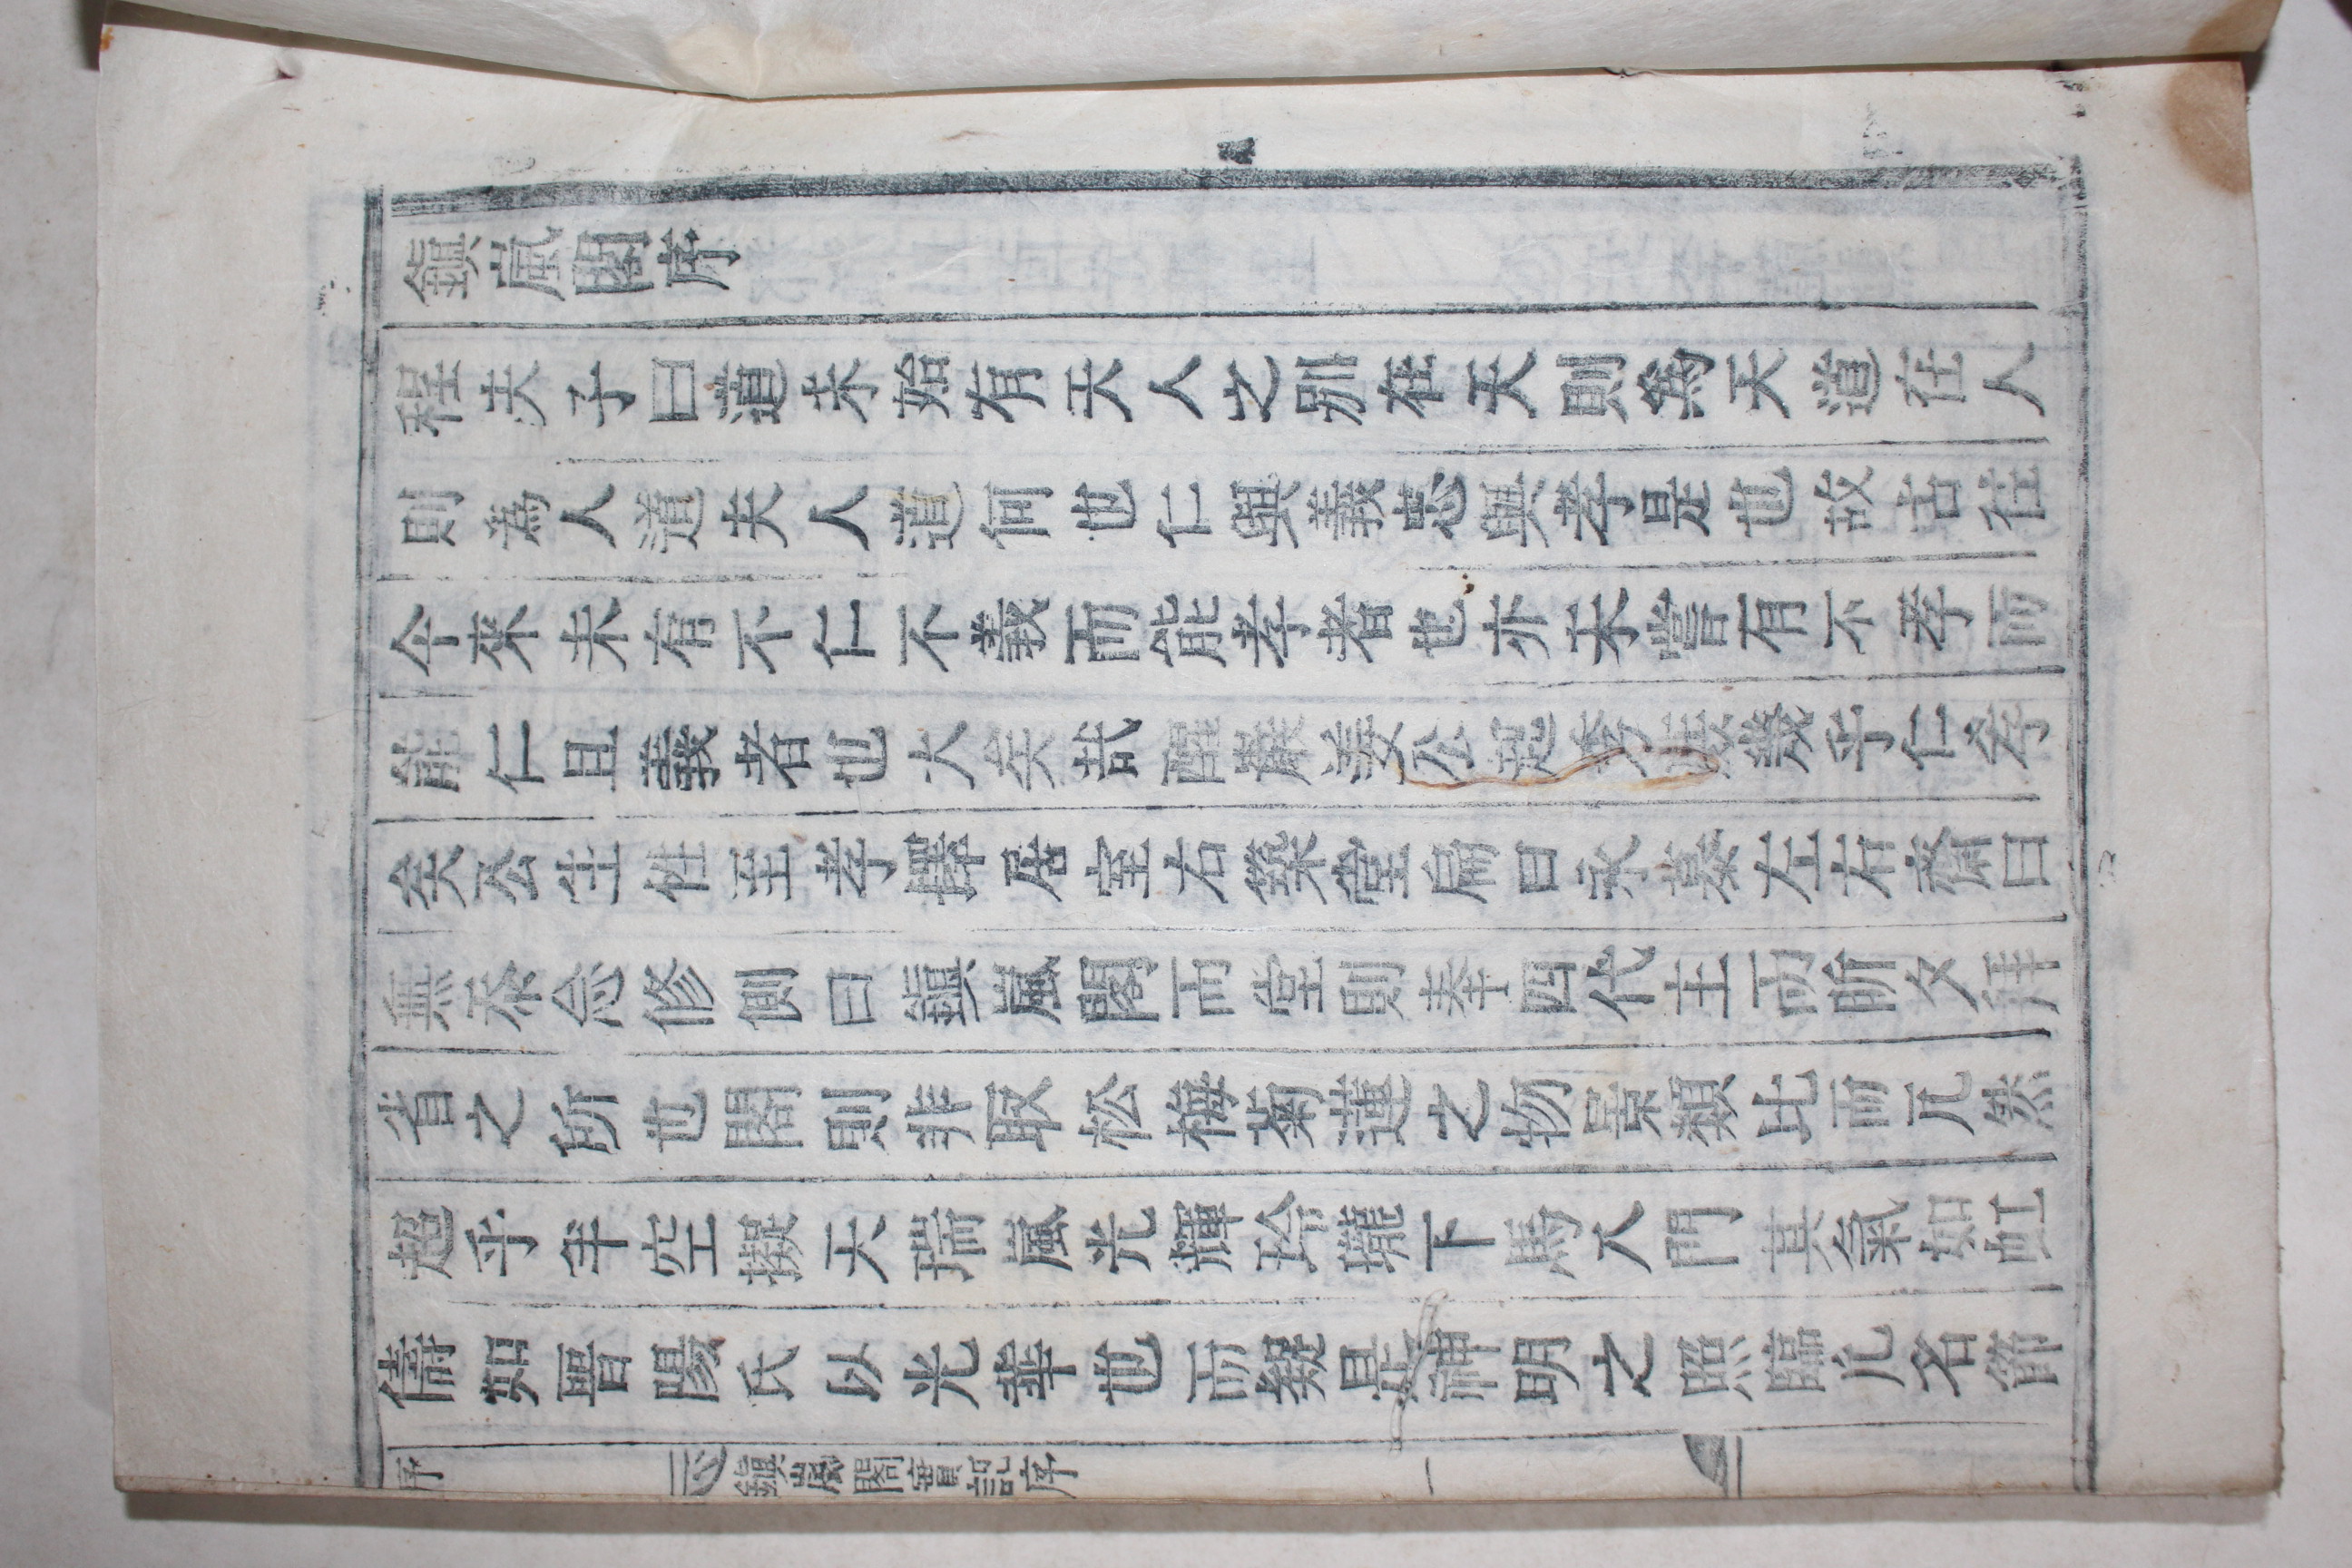 鎭嵐閣序
程夫子曰道未始有天人之別在天則爲天道在人
則爲人道夫人道何也仁與義忠與孝是也故古往
今來未有不仁不義而能孝者也亦未嘗有不孝而
能仁且義者也大矣哉醒姜公幾乎仁孝
矣公生性至孝構居室右築堂扁曰永慕左右齋曰
無忝念修側曰鎭嵐閣而堂則奉四代主而昕夕拜
省之所也閣則非取松梅菊蓮之物景類比而兀然
超乎半空擬天瑞嵐光輝玲瓏下馬入門其氣如虹
儔如晋陽氏以光華世而疑是神明之照臨尤名節
序 鎭嵐閣實記序 一